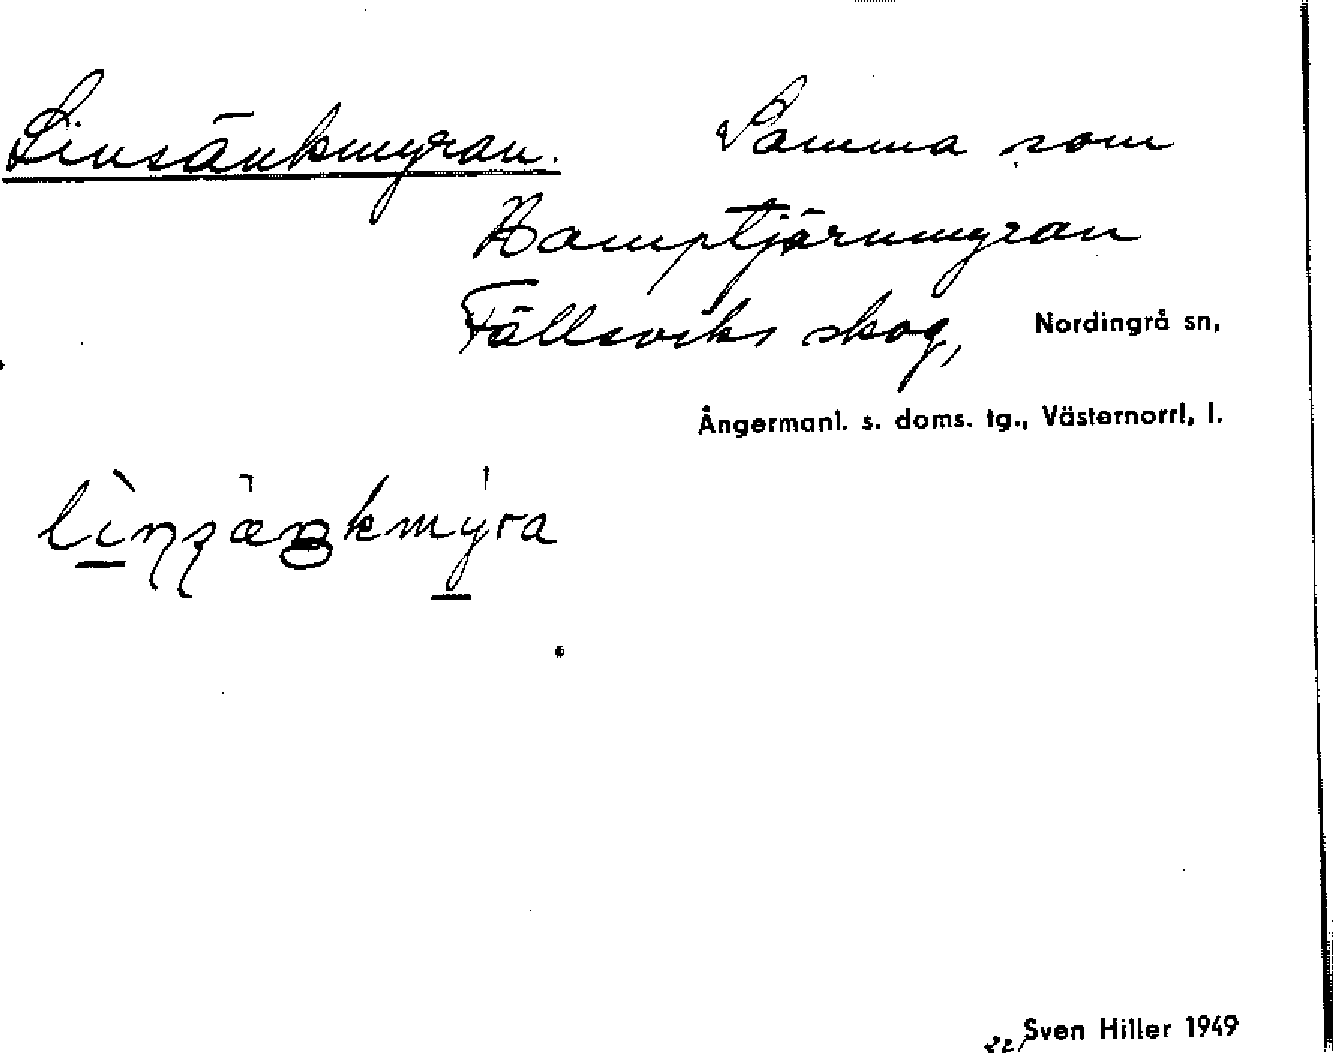 Linsänkmyran. Samma som
Hamptjärnmyran
Fällsviks skog, Nordingrå sn,
Ångermanl. s. doms. tg., Västernorrl, l.
Sven Hiller 1949